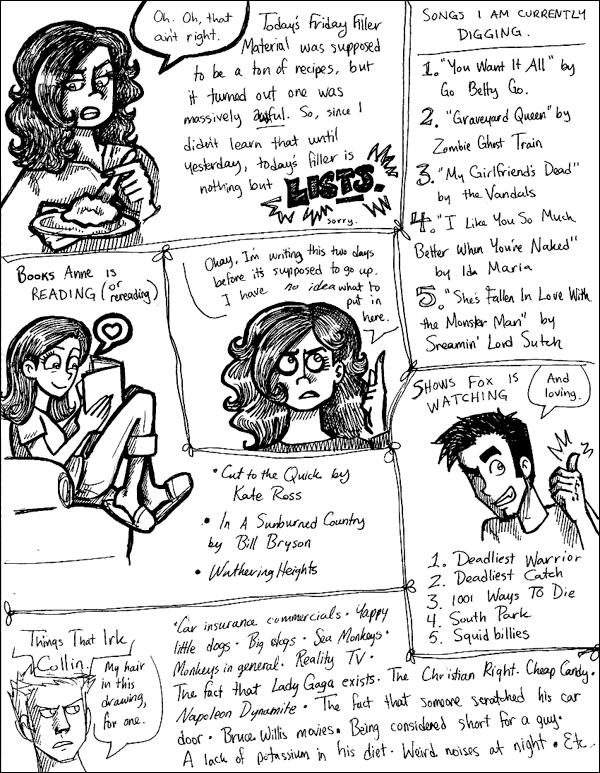 Oh. Oh, that
ain't right.
Today's Friday Filler
Material was supposed
to be a ton of recipes, but
it turned out one was
massively awful. So, since I
didn't learn that until
yesterday, today's filler is
nothing but LISTS.
Sorry.
SONGS I AM CURRENTLY
DIGGING.
1. "You Want It All" by
Go Betty Go.
2. "Graveyard Queen" by
Zombie Ghost Train
3. "My Girlfriend's Dead"
by the Vandals
4. "I Like You So Much
Better When You're Naked"
by Ida Maria
5. "She's Fallen In Love With
the Monster Man" by
Sreamin' Lord Sutch
BOOKS ANNE IS
READING (or rereading)
Okay, I'm writing this two days
before it's supposed to go up.
I have no idea what to
put in
here.
• Cut to the Quick by
Kate Ross
• In A Sunburned Country
by Bill Bryson
• Wuthering Heights
5 SHOWS FOX IS
WATCHING
And
loving.
1. Deadliest Warrior
2. Deadliest Catch
3. 1001 Ways To Die
4. South Park
5. Squidbillies
Things That Irk
Collin.
My hair
in this
drawing,
for one.
• Car insurance commercials • Yappy
little dogs • Big dogs • Sea Monkeys •
Monkeys in general • Reality TV •
The fact that Lady Gaga exists • The Christian Right • Cheap Candy •
Napoleon Dynamite • The fact that someone scratched his car
door • Bruce Willis movies • Being considered short for a guy •
A lack of potassium in his diet • Weird noises at night • Etc.